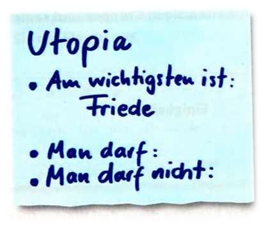 Utopia
• Am wichtigsten ist:
Friede
• Man darf:
• Man darf nicht: